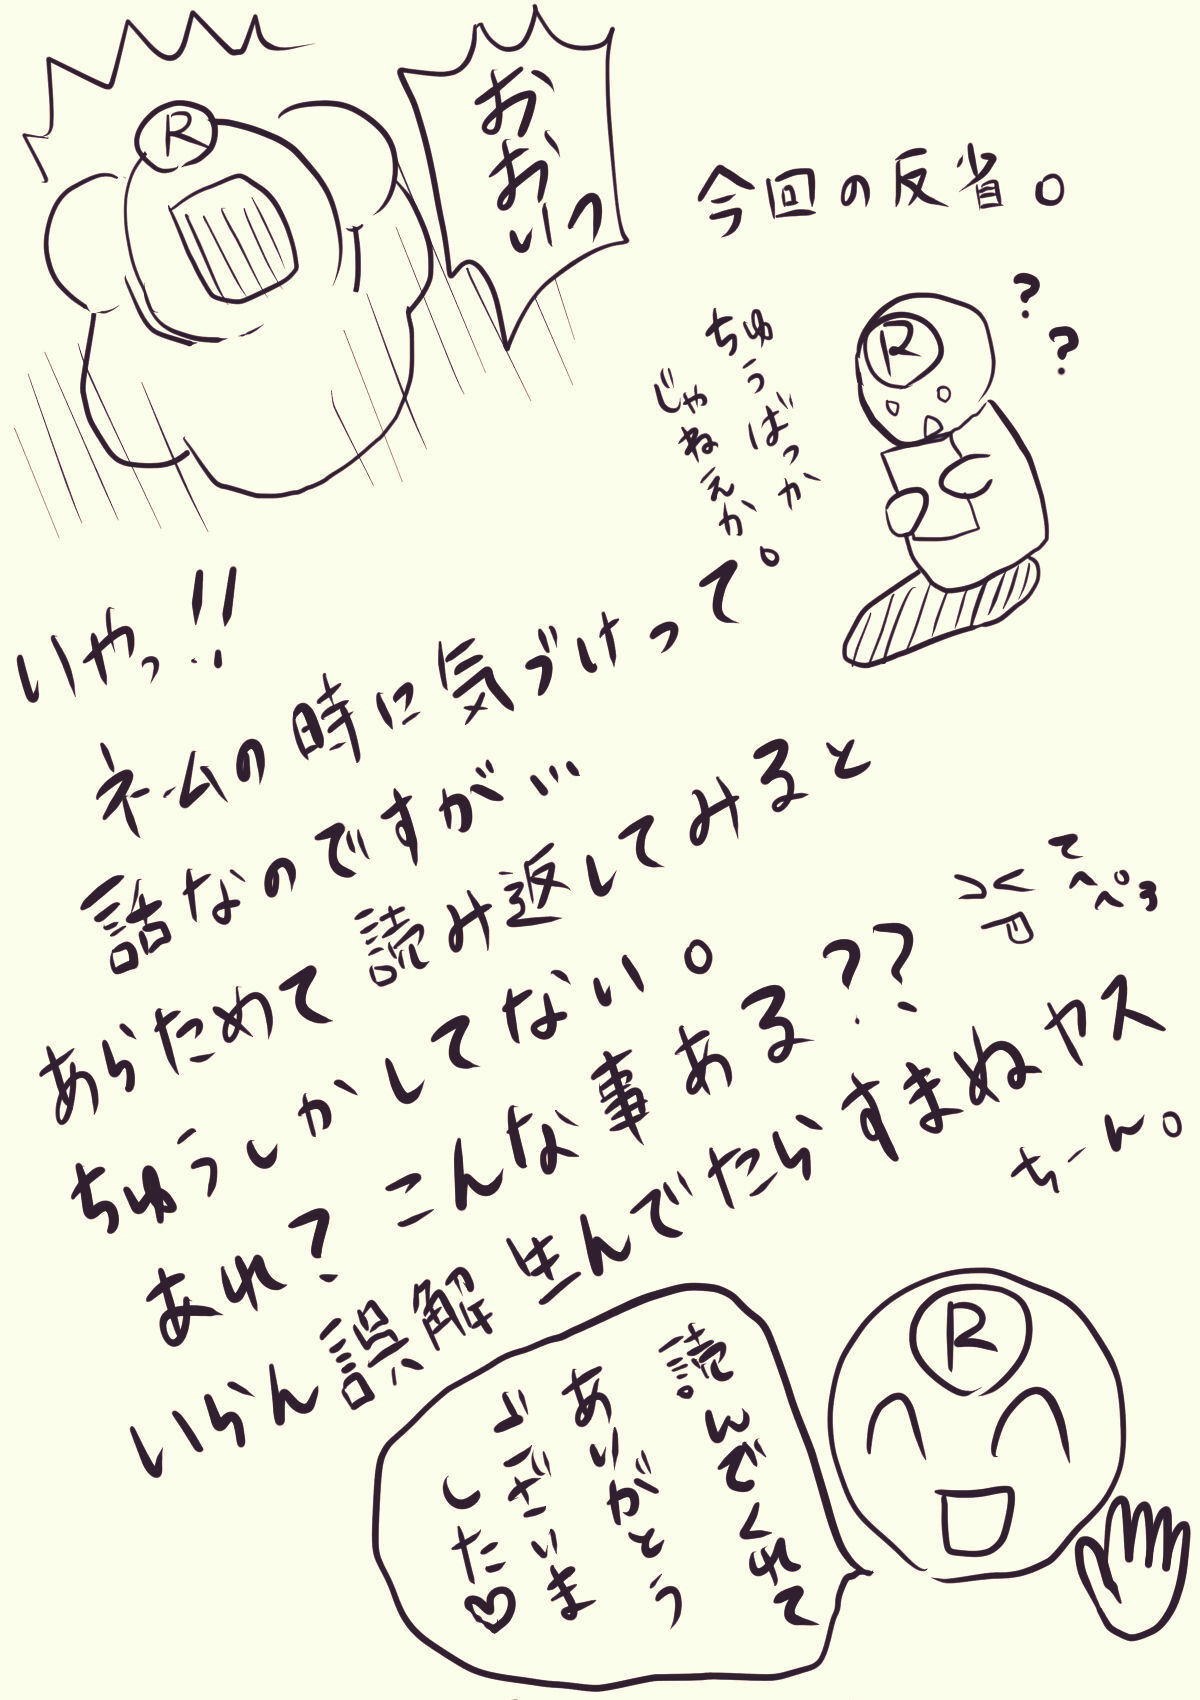 今回の反省。
R
?
?
ちゅうばっか
じゃねえか。
おおいっ
R
いやっ!!
ネームの時に気づけって
話なのですが…
あらためて読み返してみると
ちゅうしかしてない。
あれ?こんな事ある??
いらん誤解生んでたらすまぬヤス
てへぺろ
ちーん。
R
読んでくれて
ありがとう
ございま
した♡